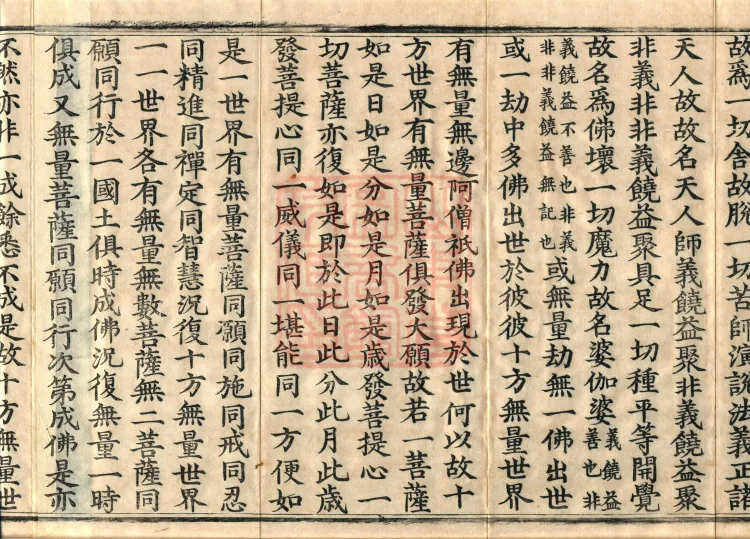 故爲一切舍故脫一切苦師演說法義正諸
天人故故名天人師義饒益聚非義饒益聚
非義非非義饒益聚具足一切種平等開覺
故名爲佛壞一切魔力故名婆伽婆義饒益善也非
義饒益不善也非義非非義饒益無記也或無量劫無一佛出世
或一劫中多佛出世於彼彼十方無量世界
有無量無邊阿僧祇佛出現於世何以故十
方世界有無量菩薩俱發大願故若一菩薩
如是日如是分如是月如是歲發菩提心一
切菩薩亦復如是即於此日此分此月此歲
發菩提心同一威儀同一堪能同一方便如
是一世界有無量菩薩同願同施同戒同忍
同精進同禪定同智慧況復十方無量世界
一一世界各有無量無數菩薩無二菩薩同
願同行於一國土俱時成佛況復無量一時
俱成又無量菩薩同願同行次第成佛是亦
不然亦非一成餘悉不成是故十方無量世